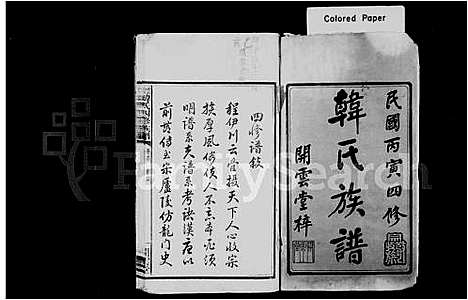 Colored Paper
民國丙寅四修
韓氏族譜
開雲堂梓
四修譜敘
程伊川云管攝天下人心收宗
族厚風俗使人不忘本須
明譜系夫譜系考訣漢應以
前其傳至宋廬陵仿龍門史
FamilySearch